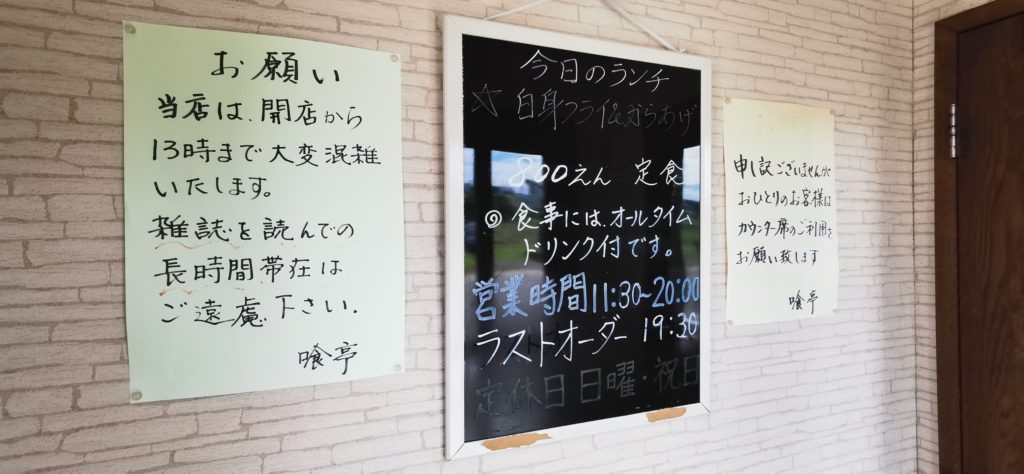 お願い
当店は、開店から
13時まで大変混雑
いたします。
雑誌を読んでの
長時間帯在は
ご遠慮下さい.
喰亭
今日のランチ
☆ 白身フライ&からあげ
800えん 定食
◎食事には、オールタイム
ドリンク付です。
営業時間11:30~20:00
ラストオーダー 19:30
定休日 日曜・祝日
申し訳ございませんが
おひとりのお客様は
カウンター席のご利用を
お願い致します
喰亭